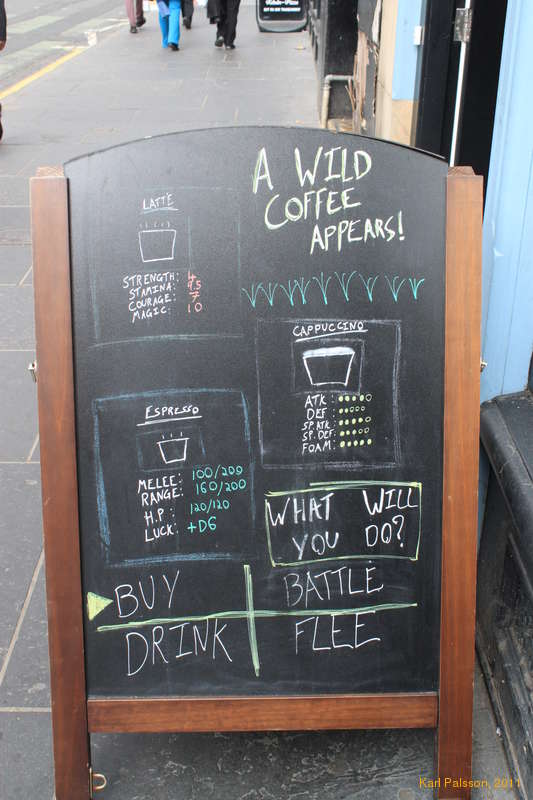 A WILD
COFFEE
APPEARS!
LATTE
STRENGTH: 4
STAMINA: 9.5
COURAGE: 7
MAGIC: 10
CAPPUCCINO
ATK:
DEF:
SP.ATK:
SP.DEF:
FOAM:
ESPRESSO
MELEE: 100/200
RANGE: 160/200
H.P: 120/120
LUCK: +D6
WHAT WILL
YOU DO?
BUY BATTLE
DRINK FLEE
Karl Palsson, 2011